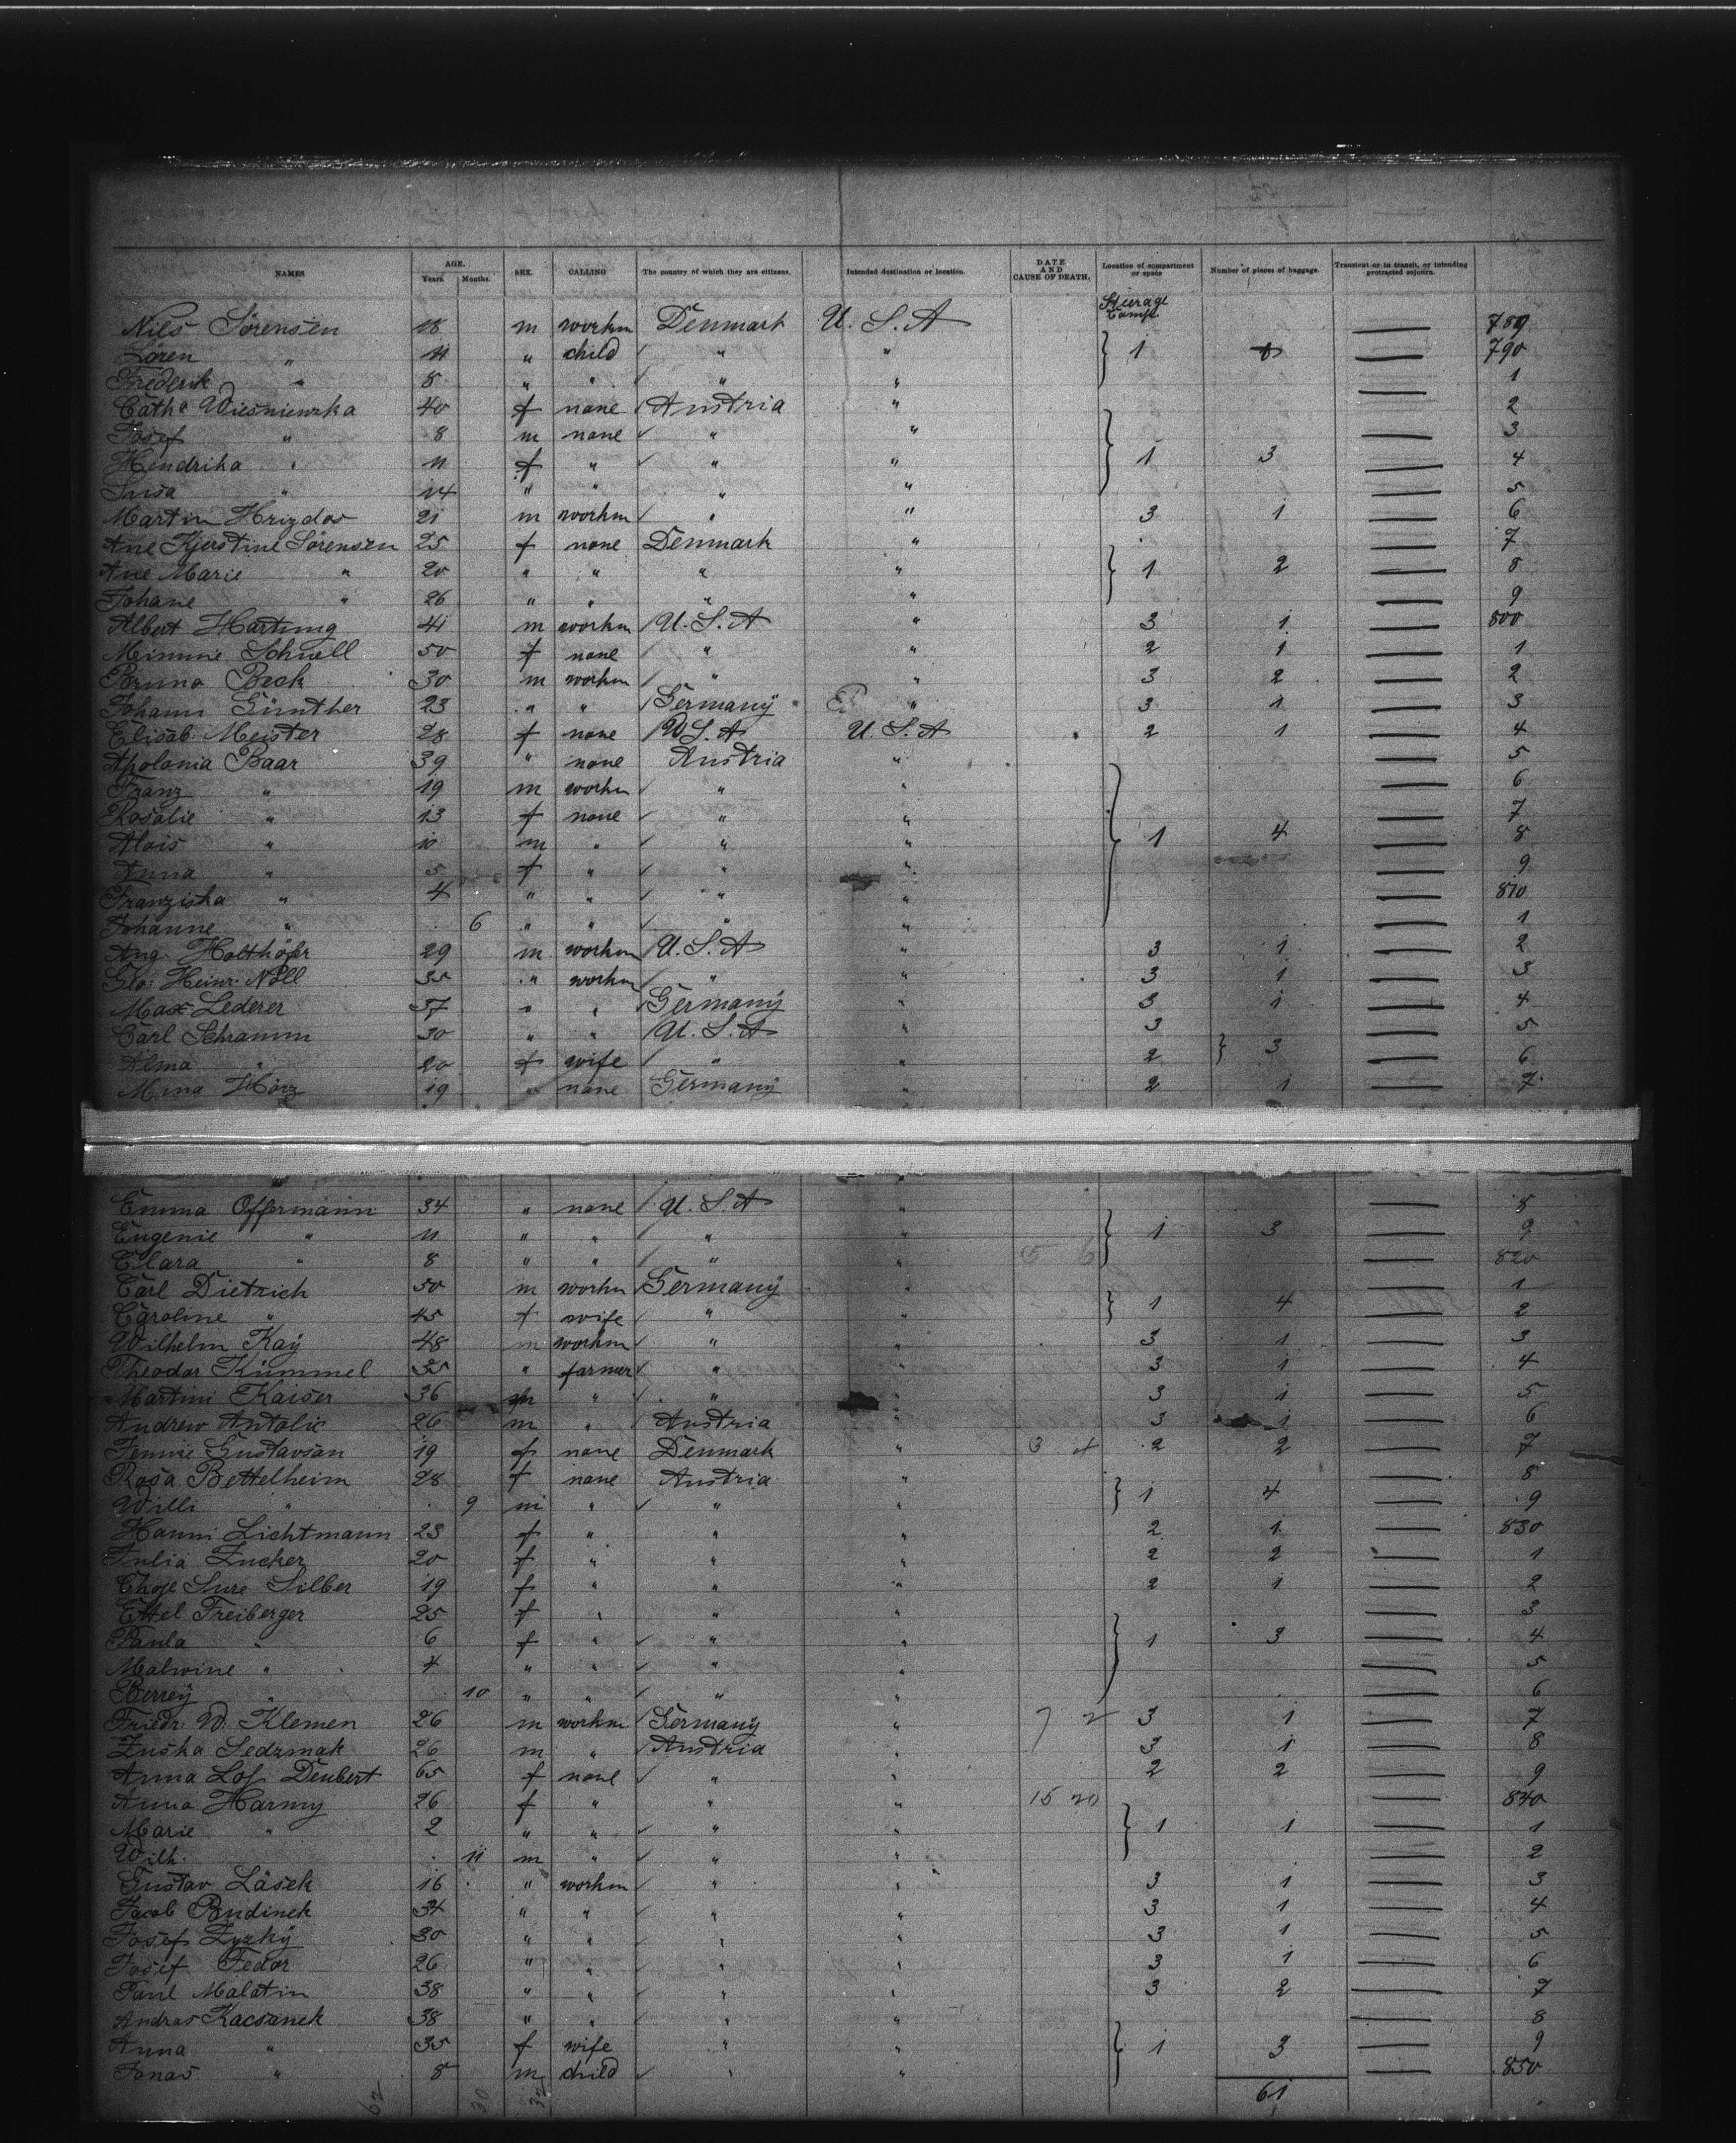 NAMES AGE. Years. Months. SEX. CALLING The country of which they are citizens. Intended destination or location. DATE AND CAUSE OF DEATH. Location of compartment or space Number of pieces of baggage. Transient or in transit, or intending protracted sojourn.
Steerage Comp.
Niels Sörensen 18 m workm Denmark U. S. A — 789
Sören " 11 " child " " 1 — 790
Frederik " 8 " " " " — 1
Cath. Wiesniewska 40 f none Austria " — 2
Josef " 8 m none " " — 3
Hendrika " 11 f " " " 1 3 — 4
Susa " 14 " " " " — 5
Martin Hrizdas 21 m workm " " 3 1 — 6
Ane Kjerstine Sörensen 25 f none Denmark " — 7
Ane Marie " 20 " " " " 1 2 — 8
Johane " 26 " " " " — 9
Albert Hartung 41 m workm U. S. A " 3 1 — 800
Minnie Schnell 50 f none " " 2 1 — 1
Bruno Beck 30 m workm " " 3 2 — 2
Johann Günther 23 " " Germany " 3 1 — 3
Elisab. Meister 28 f none U. S. A U. S. A 2 1 — 4
Apolonia Baar 39 " none Austria " — 5
Franz " 19 m workm " " — 6
Rosalie " 13 f none " " — 7
Alois " 10 m " " " 1 4 — 8
Anna " 5 f " " " — 9
Franziska " 4 " " " " — 810
Johanne " 6 " " " " — 1
Aug. Holthöfer 29 m workm U. S. A " 3 1 — 2
Heinr. Nöll 35 " workm " " 3 1 — 3
Max Lederer 37 " " Germany " 3 1 — 4
Carl Schramm 30 " " U. S. A " 3 — 5
Alma " 20 f wife " " 2 3 — 6
Mina Hörz 19 " none Germany " 2 1 — 7
Emma Offermann 34 " none U. S. A " — 8
Eugenie " 11 " " " " 1 3 — 9
Clara " 8 " " " " — 820
Carl Dietrich 50 m workm Germany " — 1
Caroline " 45 f wife " " 1 4 — 2
Wilhelm Kay 48 m workm " " 3 1 — 3
Theodor Kümmel 35 " farmer " " 3 1 — 4
Martin Kaiser 36 m " " " 3 1 — 5
Andrew Antalic 26 m " Austria " 3 1 — 6
Jennie Gustavson 19 f none Denmark " 3 4 2 2 — 7
Rosa Bettelheim 28 f none Austria " — 8
Willi " 9 m " " " 1 4 — 9
Hanni Lichtmann 23 f " " " 2 1 — 830
Julia Zucker 20 f " " " 2 2 — 1
Chaje Sure Silber 19 f " " " 2 1 — 2
Ettel Freiberger 25 f " " " — 3
Paula " 6 f " " " 1 3 — 4
Malwine " 4 " " " " — 5
Berrey " 10 " " " " — 6
Friedr. W. Klemen 26 m workm Germany " 7 2 3 1 — 7
Zuska Sedzmak 26 m " Austria " 3 1 — 8
Anna Deubert 65 f none " " 2 2 — 9
Anna Harmy 26 f " " " 15 20 — 840
Marie " 2 " " " " 1 1 — 1
Wilh. 11 m " " " — 2
Gustav Läsek 16 " workm " " 3 1 — 3
Jacob Budinek 34 " " " " 3 1 — 4
Josef Zyzky 30 " " " " 3 1 — 5
Josef Fedor 26 " " " " 3 1 — 6
Paul Malatin 38 " " " " 3 2 — 7
Andras Kacsanek 38 " " " " — 8
Anna " 35 f wife " " 1 3 — 9
Jonas " 8 m child " " — 850
62 30 32 61